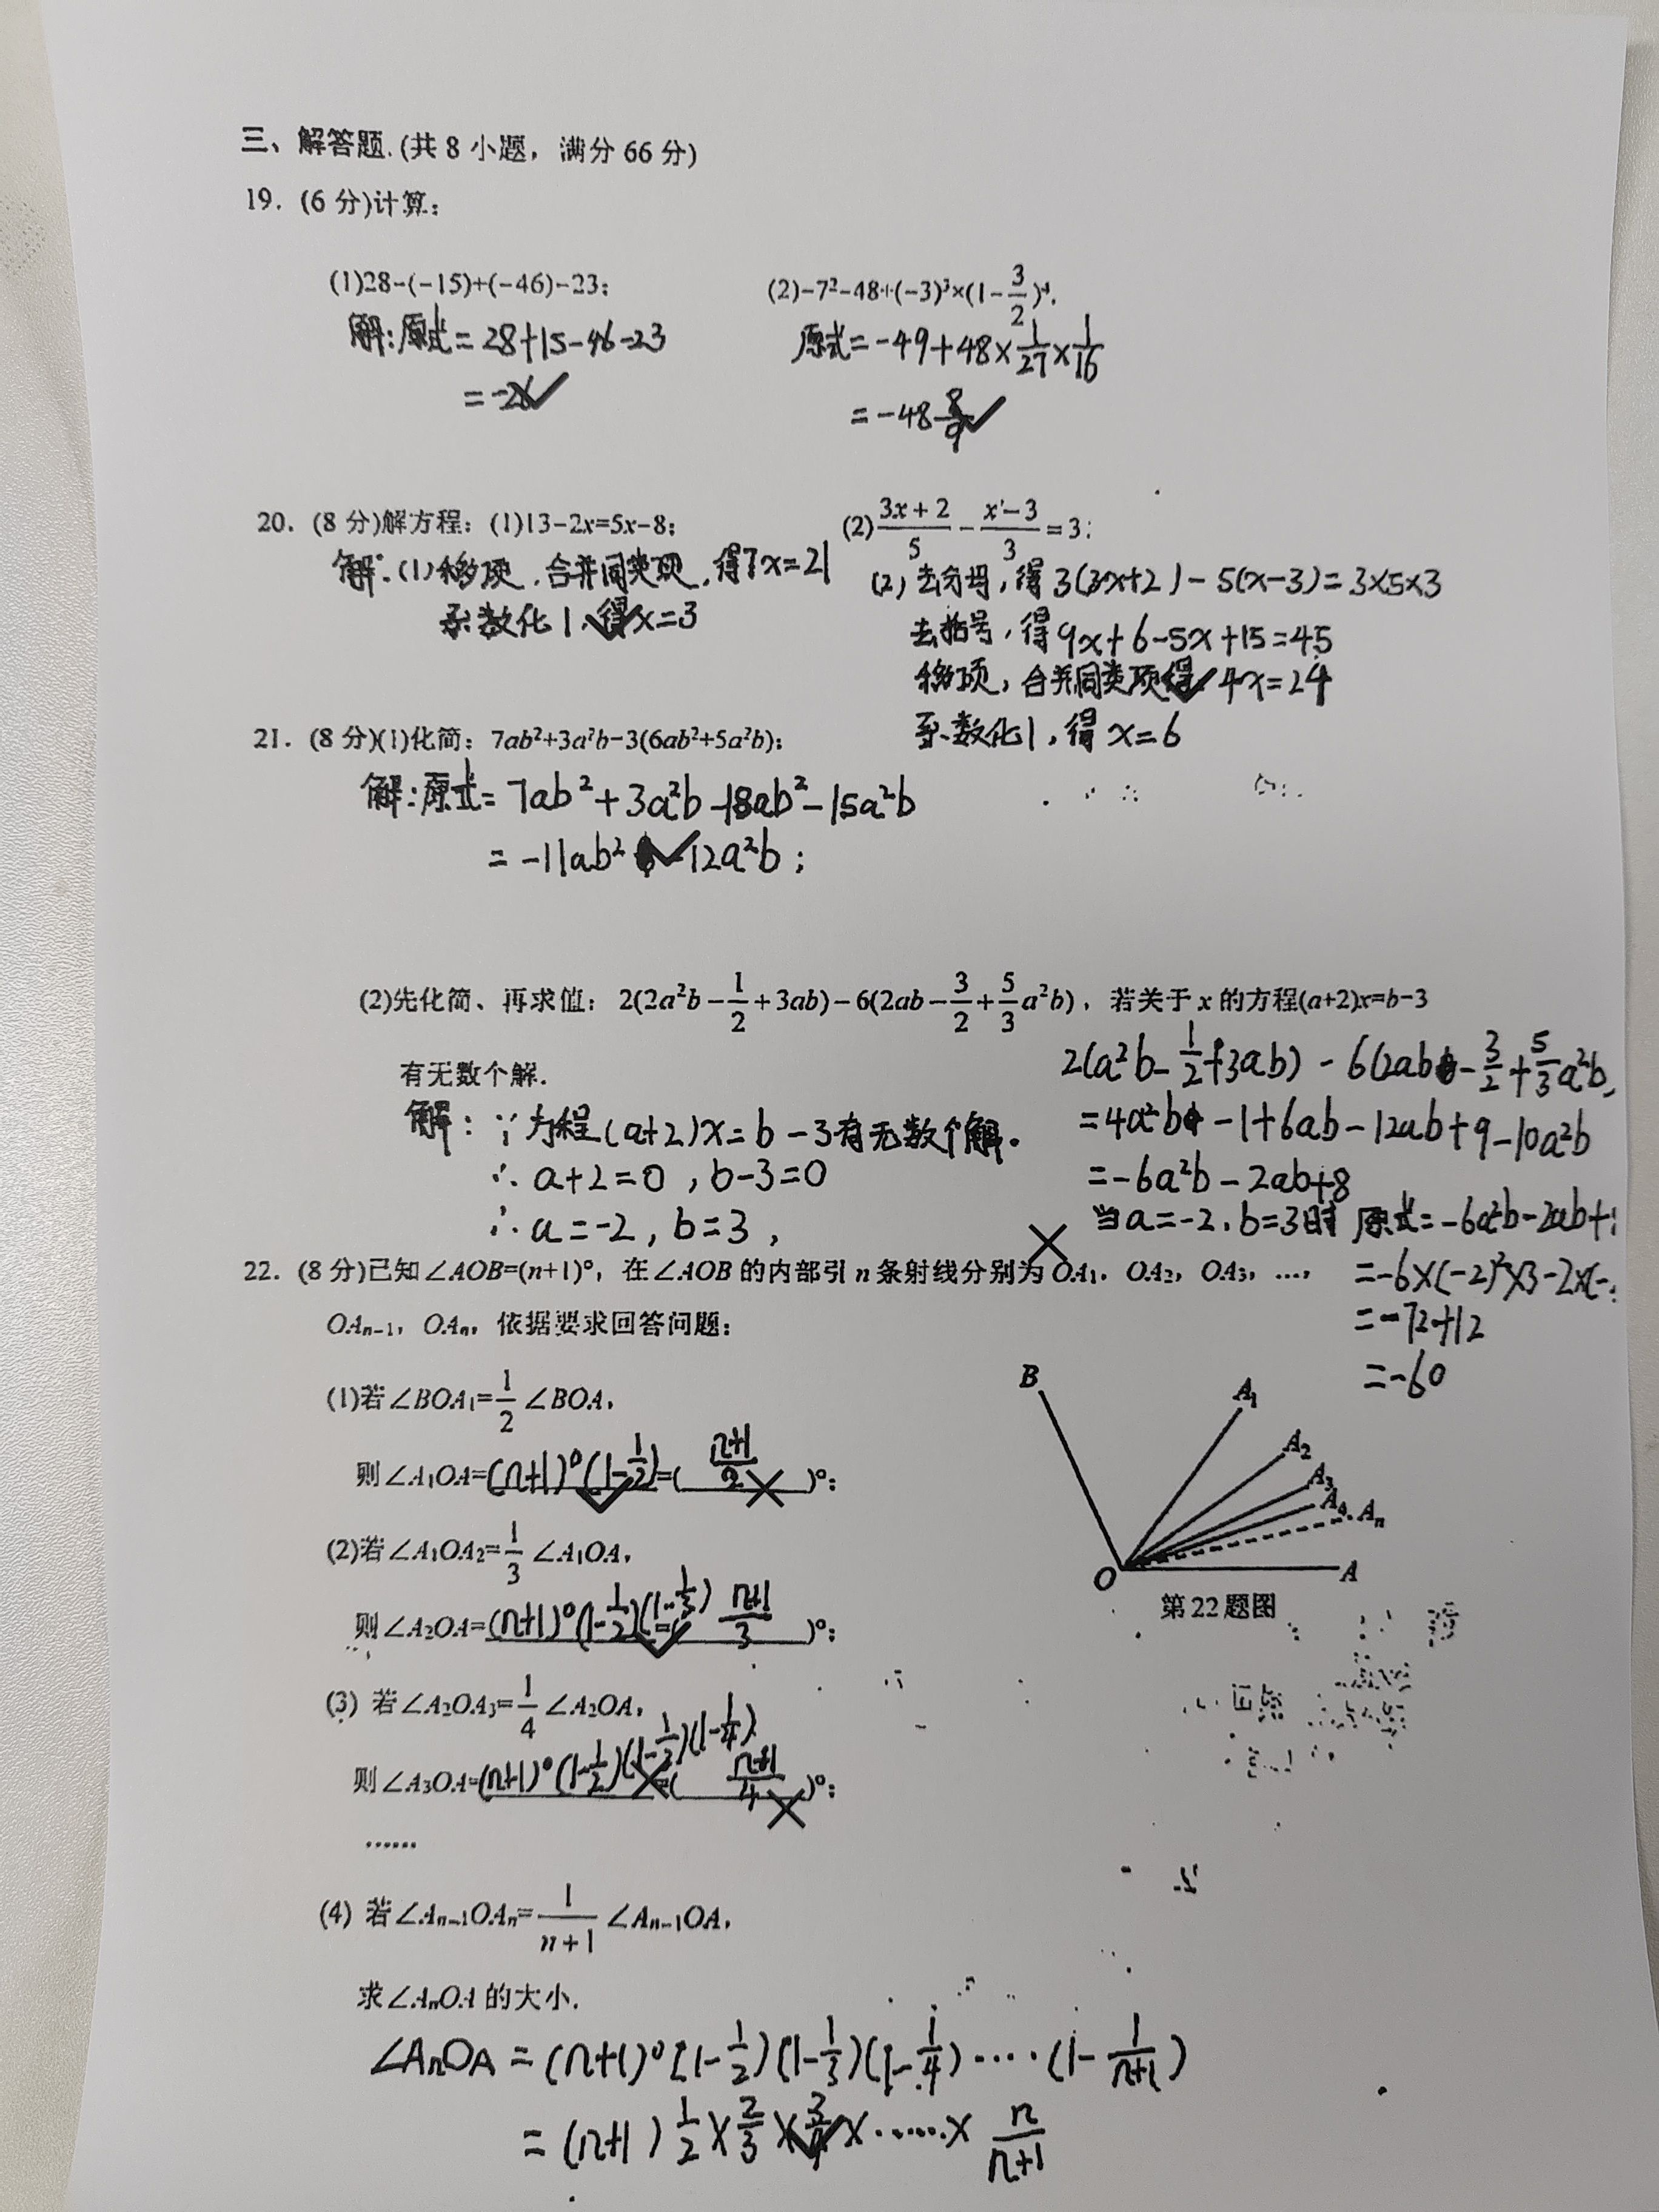 三、解答题.(共 8 小题，满分 66 分)
19. (6 分)计算：
(1)28-(-15)+(-46)-23;
(2)-7²-48÷(-3)³×(1-3/2)⁴.
解:原式=28+15-46-23
=-26
原式=-49+48×1/27×1/16
=-48 8/9
20. (8 分)解方程：(1)13-2x=5x-8;
(2)(3x+2)/5-(x-3)/3=3;
解:(1)移项,合并同类项,得7x=21
系数化1,得x=3
(2)去分母,得3(3x+2)-5(x-3)=3×5×3
去括号,得9x+6-5x+15=45
移项,合并同类项得 4x=24
系数化1,得 x=6
21. (8 分)(1)化简：7ab²+3a²b-3(6ab²+5a²b);
解:原式=7ab²+3a²b-18ab²-15a²b
=-11ab²-12a²b;
(2)先化简、再求值：2(2a²b-1/2+3ab)-6(2ab-3/2+5/3a²b)，若关于 x 的方程(a+2)x=b-3
有无数个解.
解:∵方程(a+2)x=b-3有无数个解。
∴a+2=0,b-3=0
∴a=-2,b=3,
2(a²b-1/2+3ab)-6(2ab-3/2+5/3a²b
=4a²b-1+6ab-12ab+9-10a²b
=-6a²b-2ab+8
当a=-2,b=3时 原式=-6a²b-2ab+
=-6×(-2)²×3-2×(-
=-72+12
=-60
22. (8 分)已知∠AOB=(n+1)°，在∠AOB 的内部引 n 条射线分别为 OA₁，OA₂，OA₃，…，
OAₙ₋₁，OAₙ，依据要求回答问题：
(1)若∠BOA₁=1/2 ∠BOA，
则∠A₁OA=(n+1)°(1-1/2)=( (n+1)/2 )°;
(2)若∠A₁OA₂=1/3 ∠A₁OA，
则∠A₂OA=(n+1)°(1-1/2)(1-1/3)=( (n+1)/3 )°;
(3) 若∠A₂OA₃=1/4 ∠A₂OA，
则∠A₃OA=(n+1)°(1-1/2)(1-1/3)(1-1/4)=( (n+1)/4 )°;
……
(4) 若∠Aₙ₋₁OAₙ=1/(n+1) ∠Aₙ₋₁OA，
求∠AₙOA 的大小.
∠AnOA=(n+1)°[1-1/2)(1-1/3)(1-1/4)……(1-1/(n+1))
=(n+1)1/2×2/3×3/4×……×n/(n+1)
B
A₁
A₂
A₃
A₄
Aₙ
O
A
第22题图